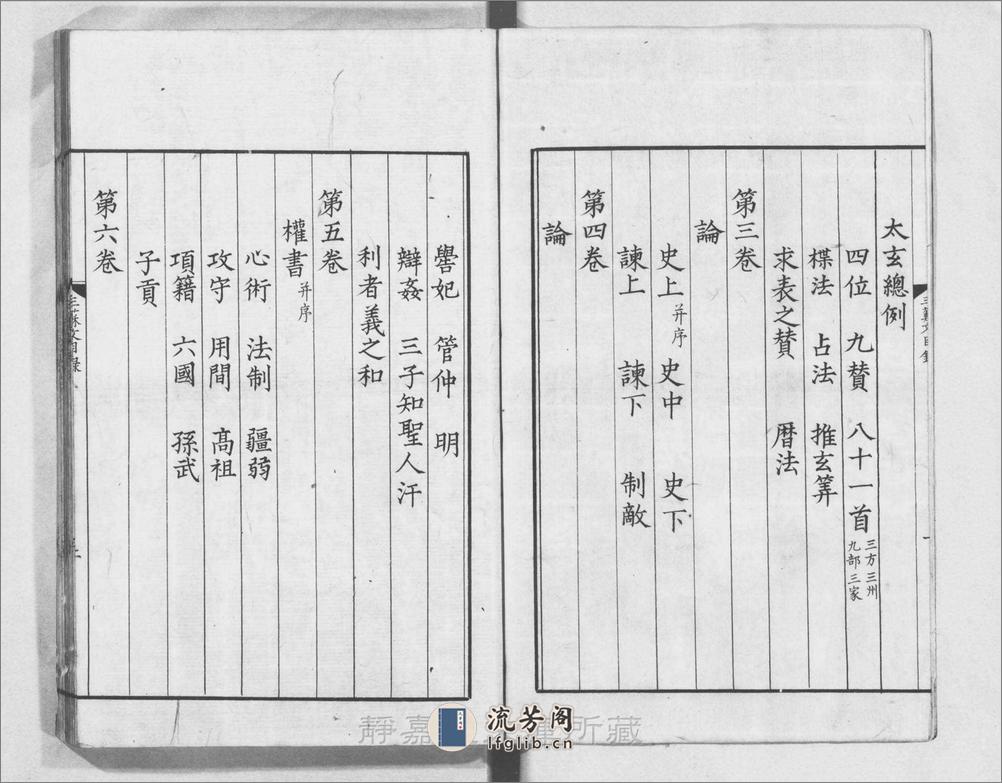 太玄總例
四位　九贊　八十一首三方三州九部三家
揲法　占法　推玄筭
求表之贊　曆法
第三卷
論
史上并序　史中　史下
諫上　諫下　制敵
第四卷
論
嚳妃　管仲　明
辯姦　三子知聖人汙
利者義之和
第五卷
權書并序
心術　法制　彊弱
攻守　用間　高祖
項籍　六國　孫武
子貢
第六卷
三蘇文目錄
靜嘉
所藏
流芳阁
lfglib.cn